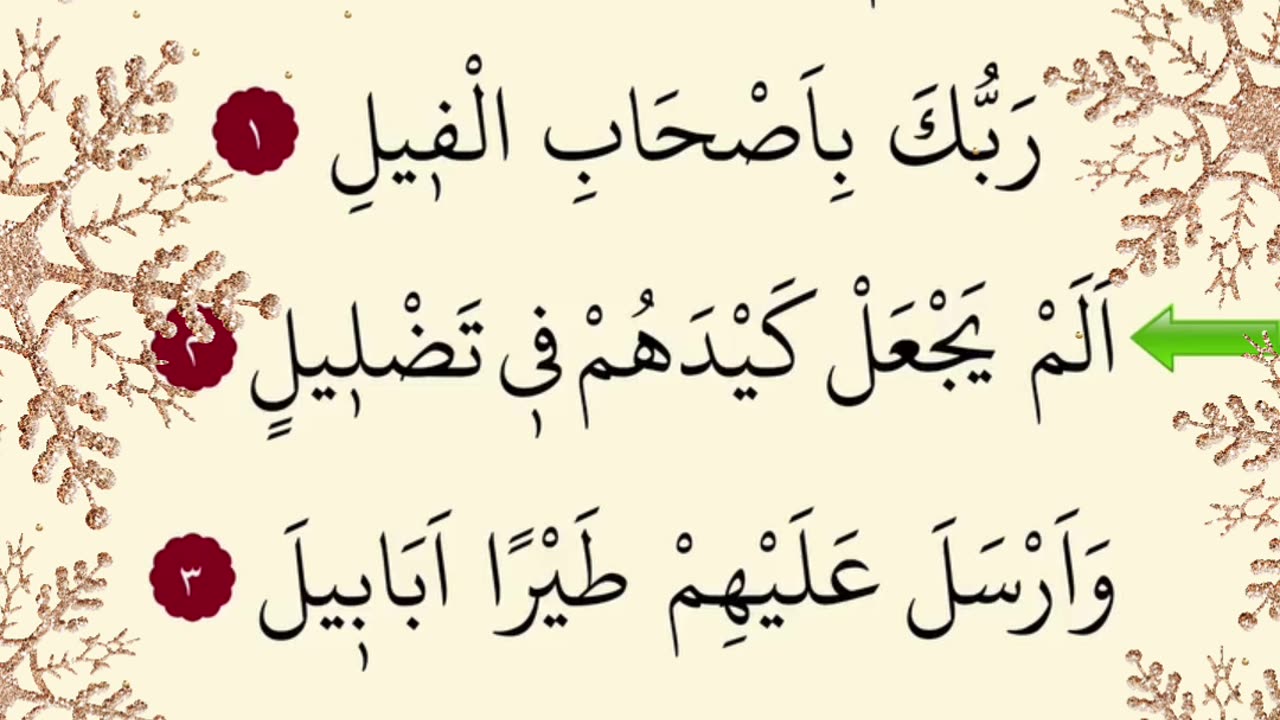 رَبُّكَ بِاَصْحَابِ الْفٖيلِ ١
اَلَمْ يَجْعَلْ كَيْدَهُمْ فٖى تَضْلٖيلٍ ٢
وَاَرْسَلَ عَلَيْهِمْ طَيْرًا اَبَابٖيلَ ٣